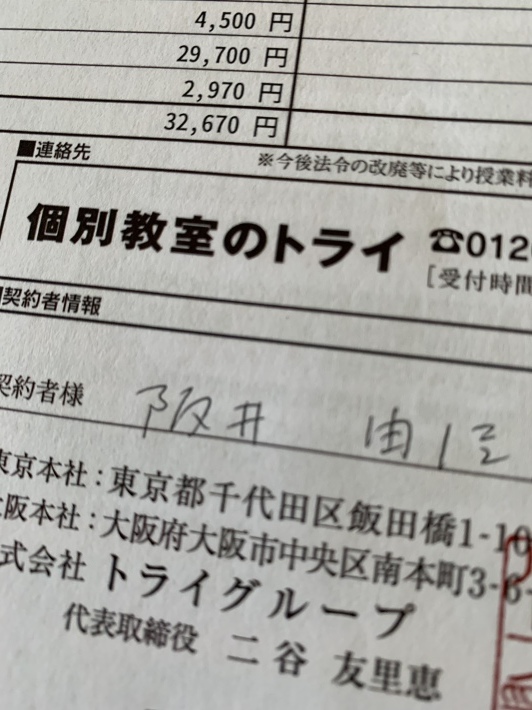 4,500 円
29,700 円
2,970 円
32,670 円
■連絡先
※今後法令の改廃等により授業料
個別教室のトライ ☎012
[受付時間
契約者情報
契約者様 阪井 由信
東京本社：東京都千代田区飯田橋1-10
大阪本社：大阪府大阪市中央区南本町3-6-
式会社 トライグループ
代表取締役 二谷 友里恵